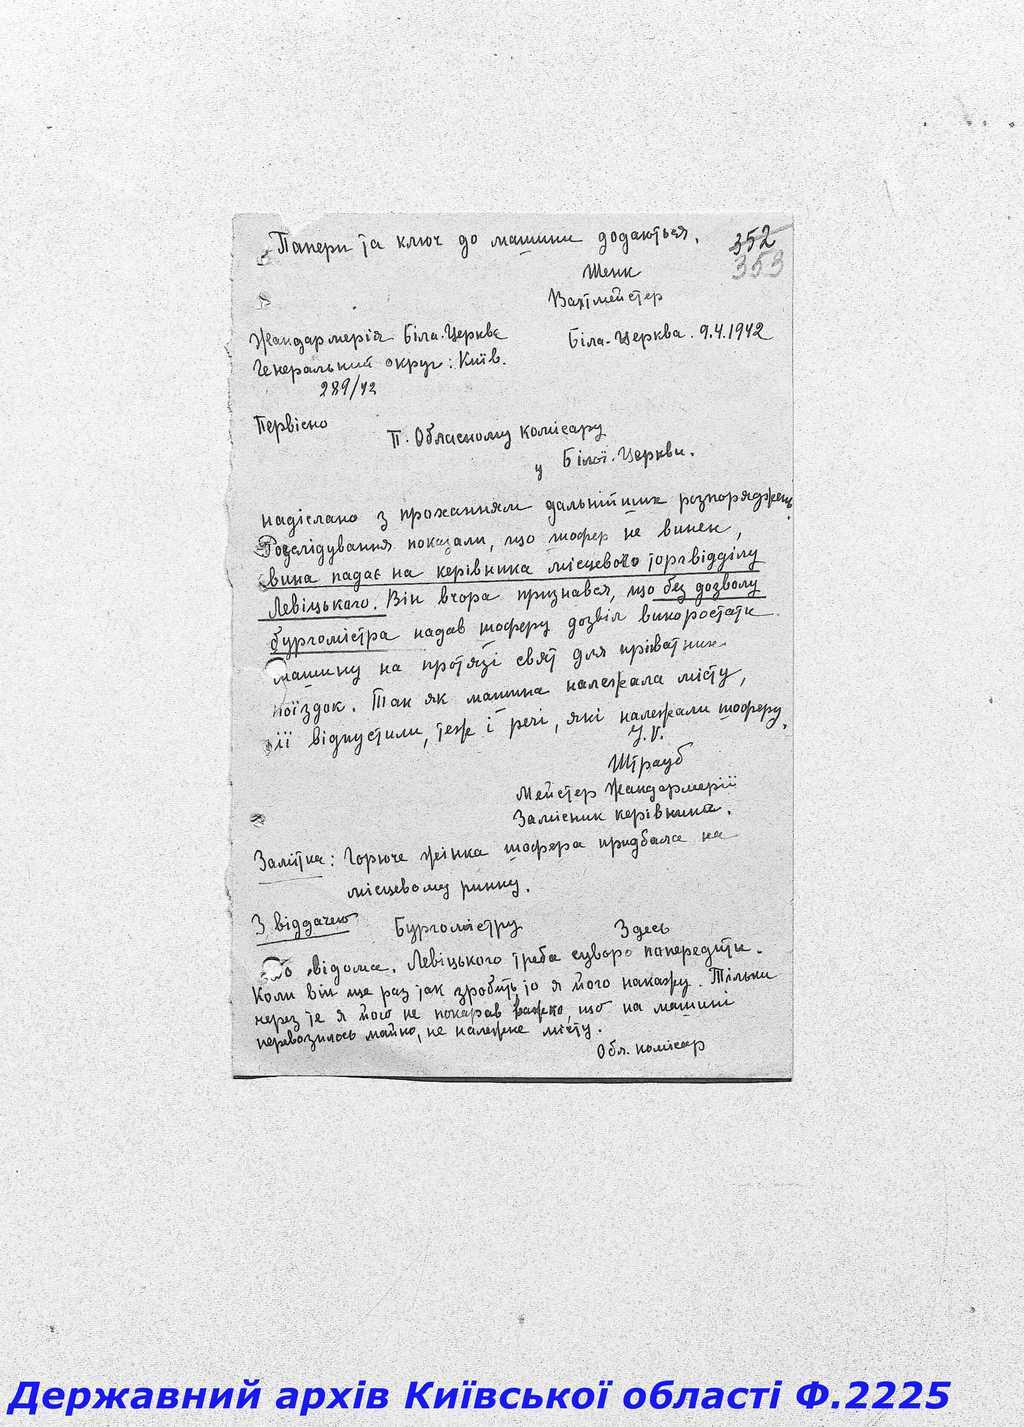 Папери та ключ до машини додаються.
352
353
Шенк
Вахтмейстер
Жандармерія Біла-Церква
Біла-Церква. 9.4.1942
Генеральний округ: Київ.
289/42
Первісно
П. Обласному комісару
у Білої-Церкви.
надіслано з проханням дальнійших розпоряджень.
Розслідування показали, що шофер не винен,
вина падає на керівника місцевого торгвідділу
Левіцького. Він вчора признався, що без дозволу
бургомістра надав шоферу дозвіл використати
машину на протязі свят для приватних
поїздок. Так як машина належала місту,
її відпустили, теж і речі, які належали шоферу.
Штрауб
Мейстер Жандармерії
Замісник керівника.
Замітка: Горюче жінка шофера придбала на
місцевому ринку.
З віддачею Бургомістру Здесь
До відома. Левіцького треба суворо попередити.
Коли він ще раз так зробить, то я його накажу. Тільки
через те я його не покарав важко, що на машині
перевозилось майно, не належне місту.
Обл. комісар
Державний архів Київської області Ф.2225